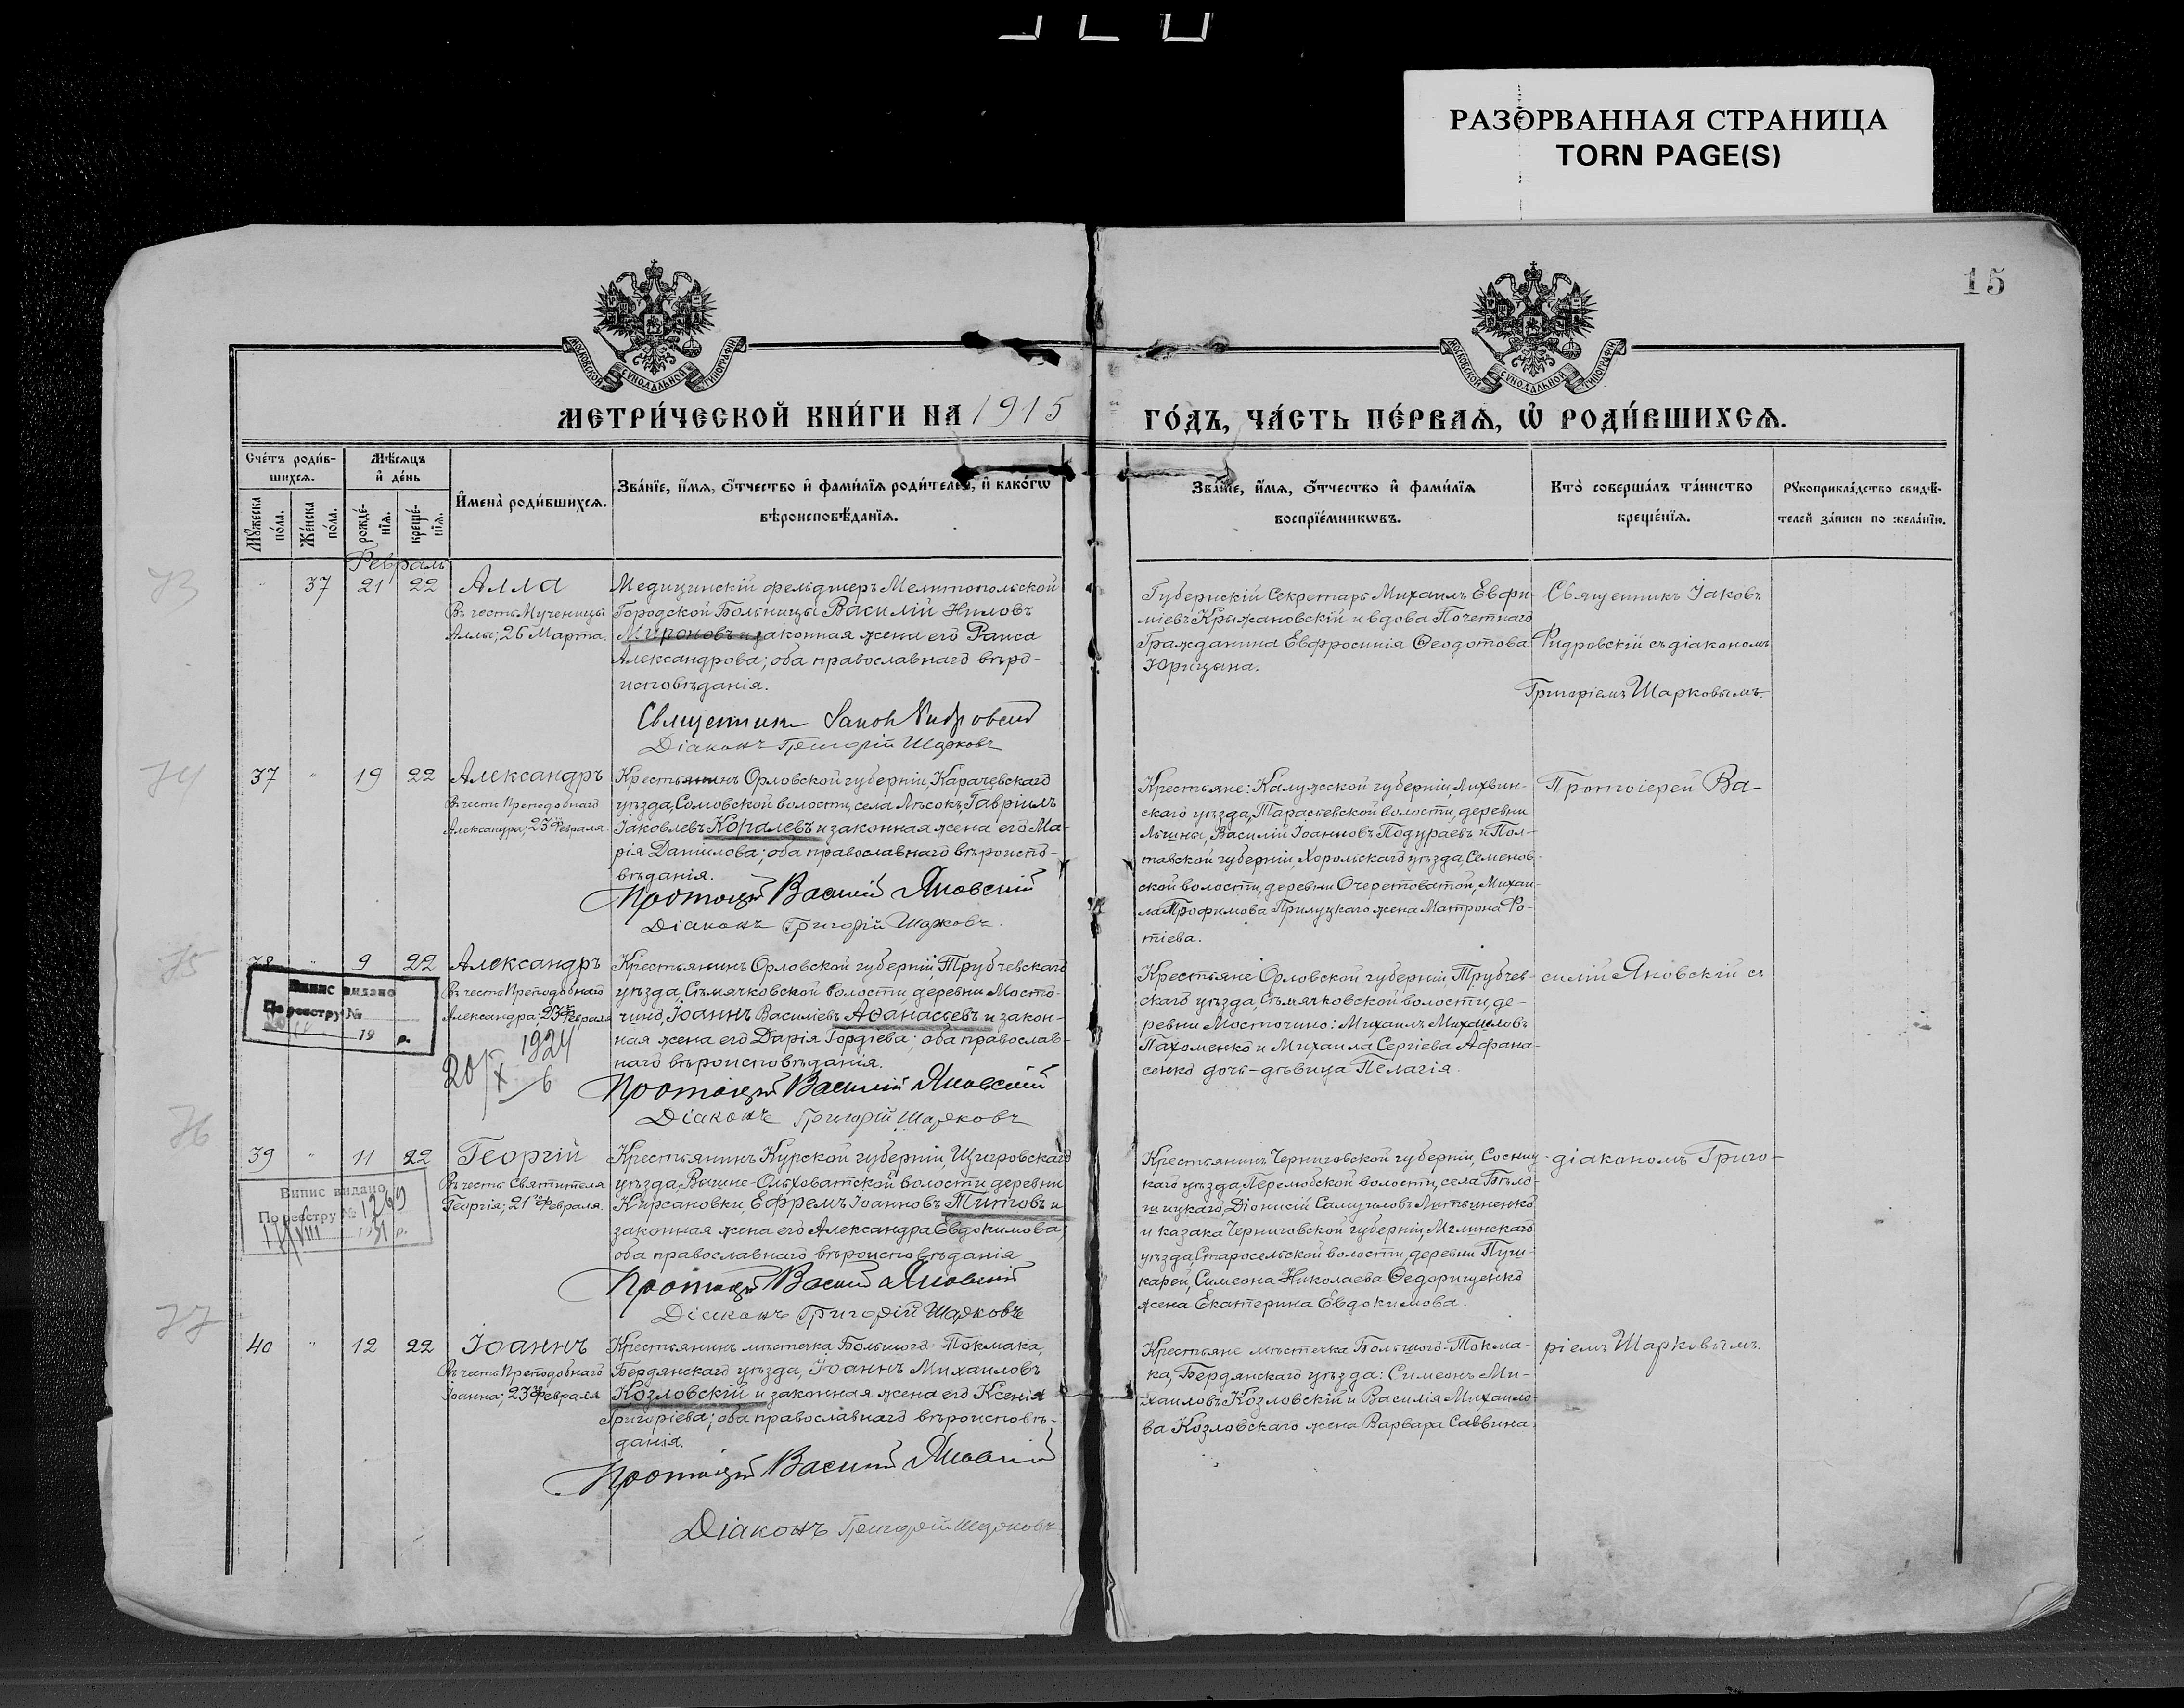 РАЗОРВАННАЯ СТРАНИЦА
TORN PAGE(S)
15
МОСКОВСКОЙ СѴНОДАЛЬНОЙ ТИПОГРАФІИ
МОСКОВСКОЙ СѴНОДАЛЬНОЙ ТИПОГРАФІИ
МЕТРИ́ЧЕСКОЙ КНИ́ГИ НА 1915
ГО́ДЪ, ЧА́СТЬ ПЕ́РВАѦ, Ѡ РОДИ́ВШИХСѦ.
Сче́тъ роди́в-
шихсѧ.
Мꙋжеска по́ла.
Же́нска по́ла.
Мѣ́сѧцъ
и҆ де́нь
рожде́-
нїѧ.
креще́-
нїѧ.
И҆мена̀ роди́вшихсѧ.
Зва́нїе, и҆́мѧ, ѻ҆́тчество и҆ фами́лїѧ роди́телей, и҆ како́гѡ
вѣроисповѣ́данїѧ.
Зва́нїе, и҆́мѧ, ѻ҆́тчество и҆ фами́лїѧ
воспрїе́мникѡвъ.
Кто̀ соверша́лъ та́инство
креще́нїѧ.
Рꙋкоприкла́дство свидѣ́-
телей за́писи по жела́нїю.
Февраль
73
37 21 22 Алла
Въ честь Мученицы
Аллы; 26 Марта.
Медицинскій фельдшеръ Мелитопольской
Городской Больницы Василій Ниловъ
Мироновъ и законная жена его Раиса
Александрова; оба православнаго вѣро-
исповѣданія.
Священникъ Іаковъ
Діаконъ Григорій Шарковъ
Губернскій Секретарь Михаилъ Евфи-
міевъ Крыжановскій и вдова Почетнаго
Гражданина Евфросинія Ѳеодотова
Юрицына.
Священникъ Іаковъ
съ діакономъ
Григоріемъ Шарковымъ.
74
37 " 19 22 Александръ
Въ честь Преподобнаго
Александра; 23 Февраля.
Крестьянинъ Орловской губерніи, Карачевскаго
уѣзда, Сомовской волости, села Лѣсокъ, Гавріилъ
Іаковлевъ Королевъ и законная жена его Ма-
рія Даніилова; оба православнаго вѣроиспо-
вѣданія.
Протоіерей Василій Яновскій
Діаконъ Григорій Шарковъ.
Крестьяне: Калужской губерніи, Лихвин-
скаго уѣзда, Тарасьевской волости, деревни
Василій Іоанновъ Подураевъ и Пол-
тавской губерніи, Хорольскаго уѣзда, Семенов-
ской волости, деревни Очеретоватой, Михаи-
ла Трофимова Прилуцкаго жена Матрона Фо-
тіева.
Протоіерей Ва-
75
38 " 9 22 Александръ
Въ честь Преподобнаго
Александра 23 Февраля
Випис видано
По реєстру №
19 р.
1924
20/X 6
Крестьянинъ Орловской губерніи, Трубчевскаго
уѣзда, Сѣмячковской волости, деревни Мосто-
чино, Іоаннъ Василіевъ Аѳанасьевъ и закон-
ная жена его Дарія Гордіева; оба православ-
наго вѣроисповѣданія.
Протоіерей Василій Яновскій
Діаконъ Григорій Шарковъ
Крестьяне Орловской губерніи, Трубчев-
скаго уѣзда, Сѣмячковской волости, де-
ревни Мосточино: Михаилъ Михаиловъ
Пахоменко и Михаила Сергіева Афана-
сенко дочь-дѣвица Пелагія.
силій Яновскій съ
76
39 " 11 22 Георгій
Въ честь Святителя
Георгія; 21 Февраля.
Випис видано
По реєстру № 1269
VIII 1931 р.
Крестьянинъ Курской губерніи, Щигровскаго
уѣзда, Вышне-Ольховатской волости деревни
Кирсановки Ефремъ Іоанновъ Титовъ и
законная жена его Александра Евдокимова;
оба православнаго вѣроисповѣданія
Протоіерей Василій Яновскій
Діаконъ Григорій Шарковъ
Крестьянинъ Черниговской губерніи, Сосниц-
каго уѣзда, Перелюбской волости, села
Діонисій Самуиловъ Литвиненко
и казака Черниговской губерніи, Мглинскаго
уѣзда, Старосельской волости, деревни Пуш-
карей, Симеона Николаева Ѳедорищенко
жена Екатерина Евдокимова.
діакономъ Григо-
77
40 " 12 22 Іоаннъ
Въ честь Преподобнаго
Іоанна; 23 Февраля
Крестьянинъ мѣстечка Большого-Токмака,
Бердянскаго уѣзда, Іоаннъ Михаиловъ
Козловскій и законная жена его Ксенія
Григоріева; оба православнаго вѣроисповѣ-
данія.
Протоіерей Василій Яновскій
Діаконъ Григорій Шарковъ
Крестьяне мѣстечка Большого-Токма-
ка, Бердянскаго уѣзда: Симеонъ Ми-
хаиловъ Козловскій и Василія Михаило-
ва Козловскаго жена Варвара Саввина
ріемъ Шарковымъ.